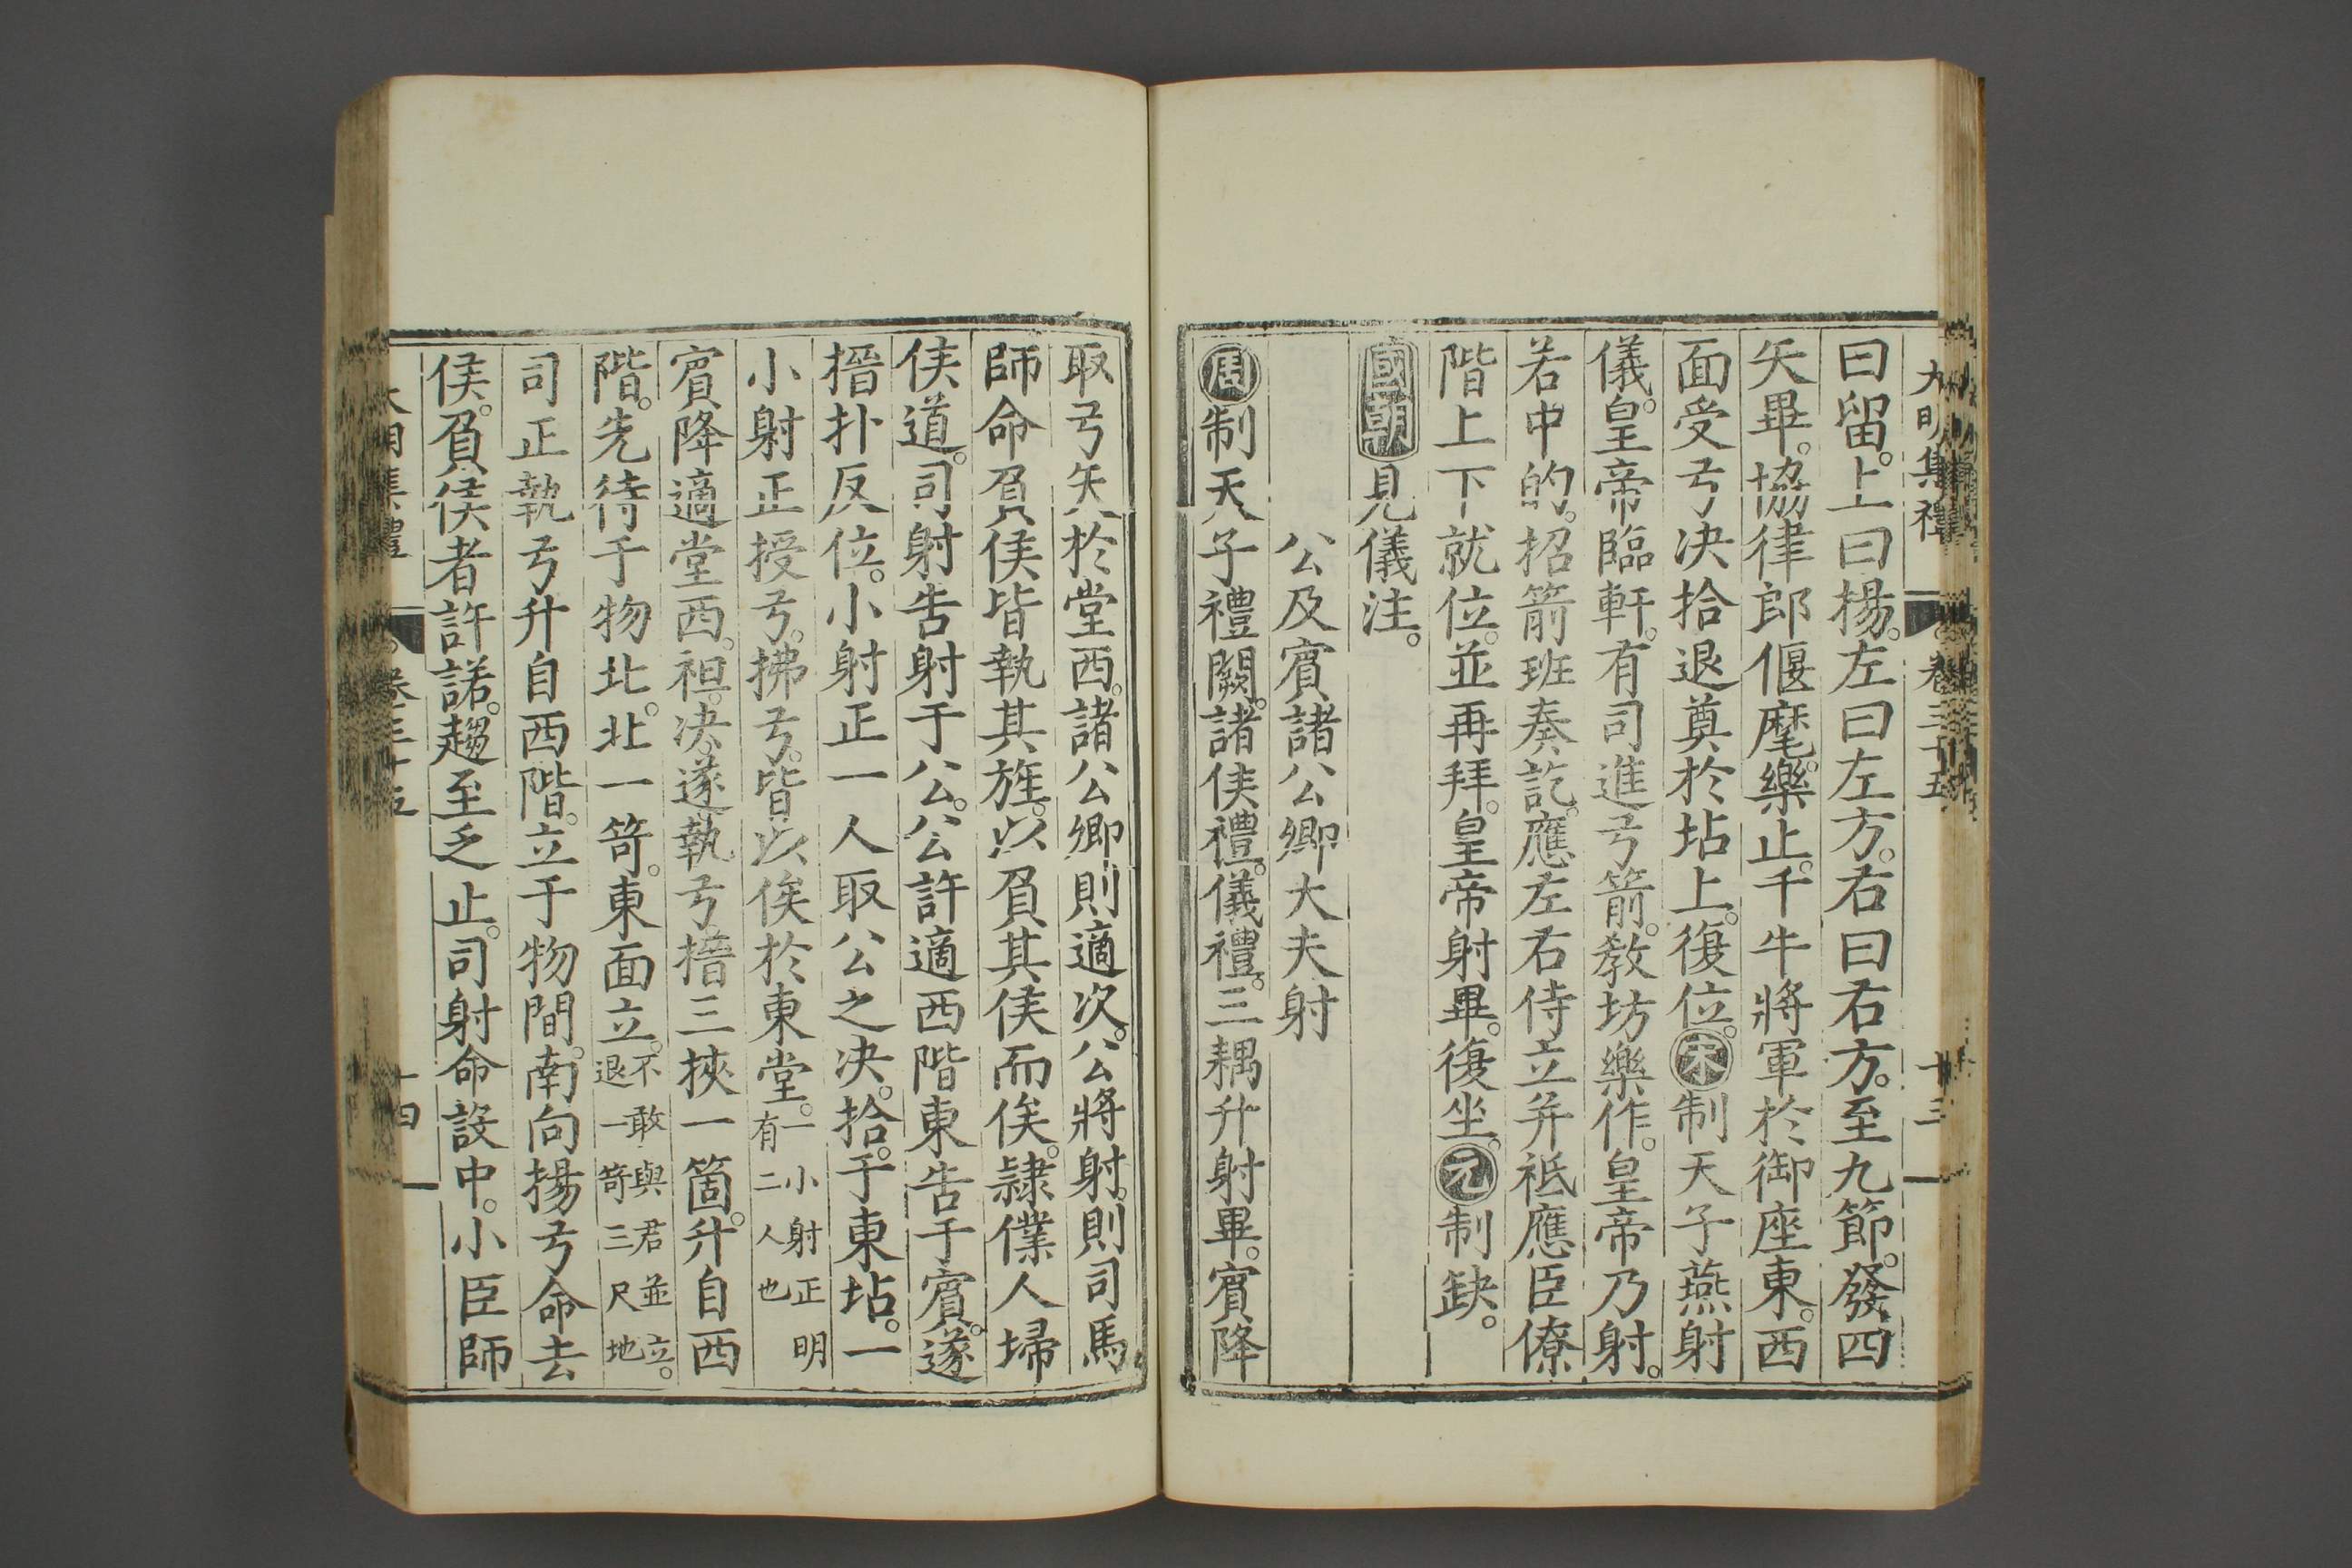 大明集禮 卷三十五 十三
曰留。上曰揚。左曰左方。右曰右方。至九節。發四
矢畢。協律郎偃麾。樂止。千牛將軍於御座東。西
面受弓決拾退奠於坫上。復位。宋制天子燕射
儀。皇帝臨軒。有司進弓箭。教坊樂作。皇帝乃射。
若中的。招箭班奏訖。應左右侍立并祗應臣僚
階上下就位。並再拜。皇帝射畢。復坐。元制缺。
國朝見儀注。
公及賓諸公卿大夫射
周制天子禮闕。諸侯禮。儀禮。三耦升射畢。賓降
取弓矢於堂西。諸公卿則適次。公將射。則司馬
師命負侯皆執其旌。以負其侯而俟。隸僕人埽
侯道。司射告射于公。公許適西階東告于賓。遂
搢扑反位。小射正一人取公之決。拾。于東坫。一
小射正授弓。拂弓。皆以俟於東堂。一小射正明有二人也
賓降適堂西。袒。決。遂執弓搢三挾一箇。升自西
階。先待于物北。北一笴。東面立。不敢與君並立。退一笴三尺地
司正執弓升自西階。立于物間。南向揚弓命去
侯。負侯者許諾。趨至乏止。司射命設中。小臣師
大明集禮 卷三十五 十四